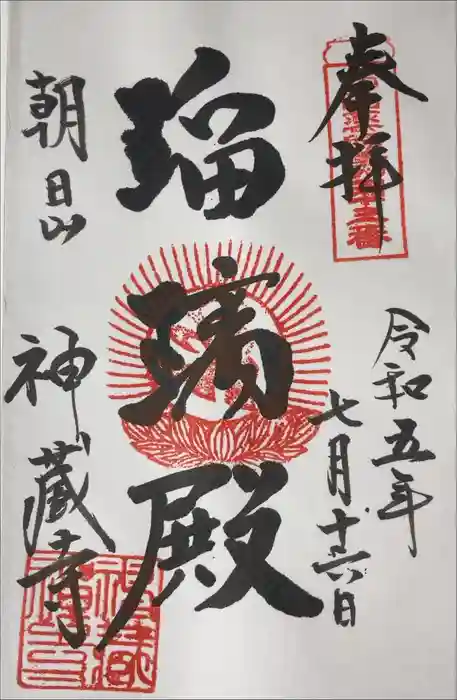 奉拝
令和五年
七月十六日
瑠璃殿
朝日山
神蔵寺